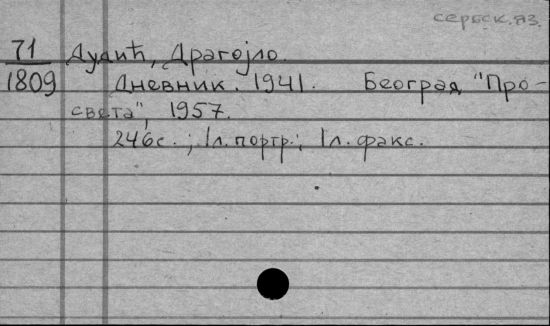 сербск. яз.
71 Дудић, Драгојло.
1809 Дневник. 1941. Београд, "Про-
света", 1957.
246с.; 1л. портр.; 1л. факс.